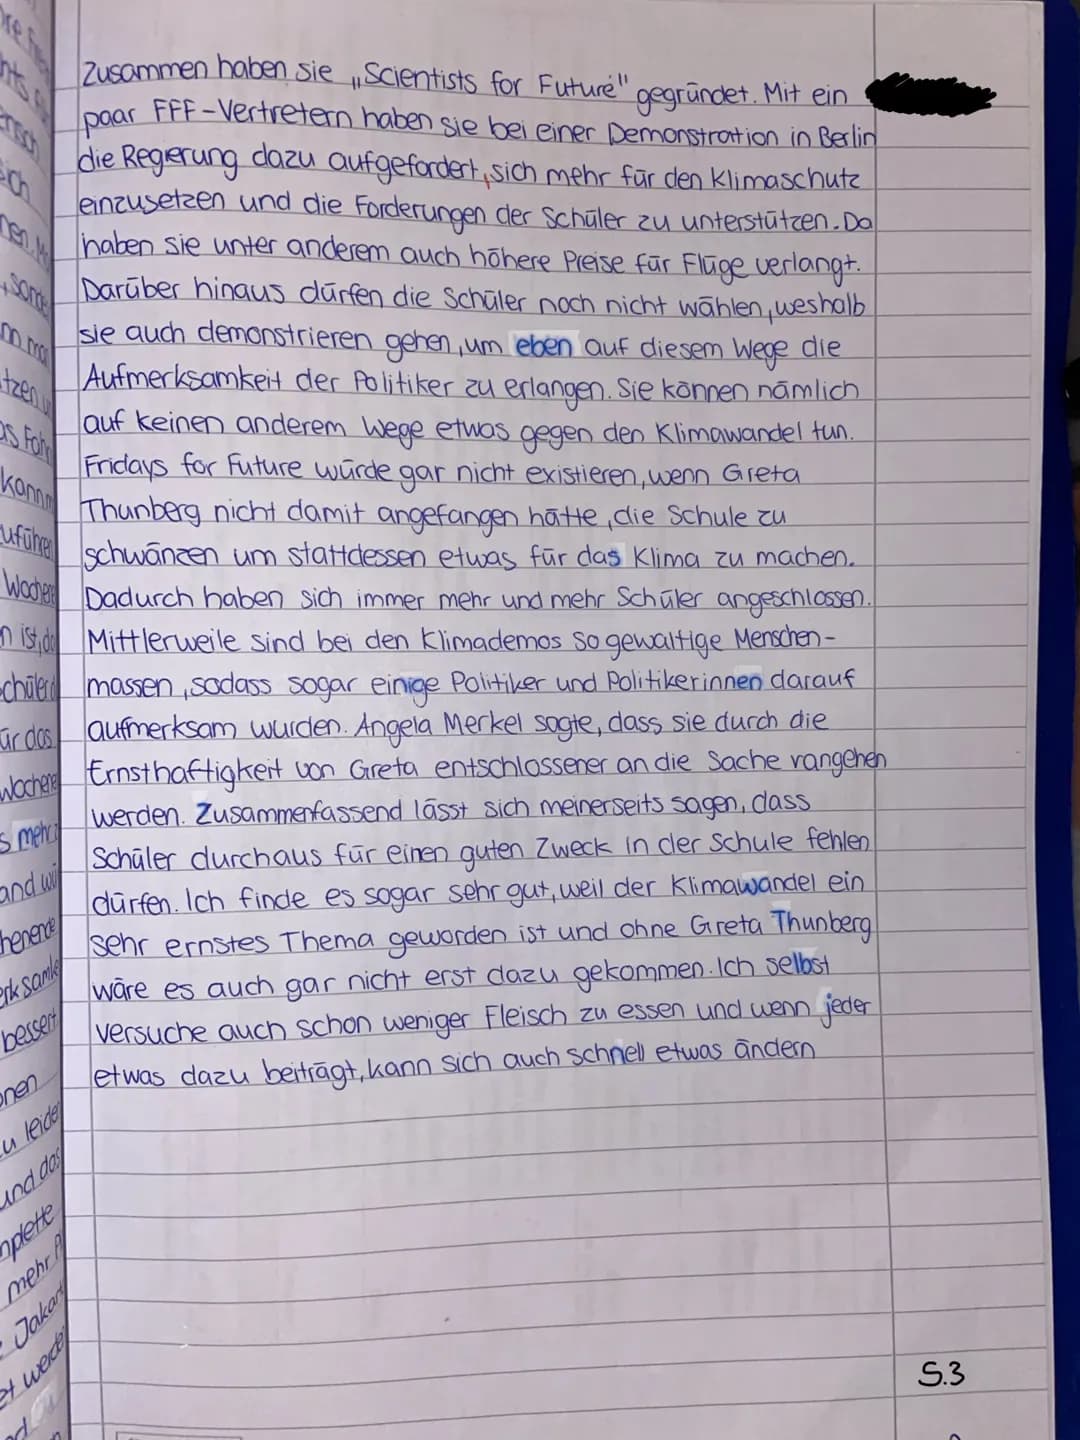 Zusammen haben sie „Scientists for Future" gegründet. Mit ein
paar FFF-Vertretern haben sie bei einer Demonstration in Berlin
die Regierung dazu aufgefordert, sich mehr für den Klimaschutz
einzusetzen und die Forderungen der Schüler zu unterstützen. Da
haben sie unter anderem auch höhere Preise für Flüge verlangt.
Darüber hinaus dürfen die Schüler noch nicht wählen, weshalb
sie auch demonstrieren gehen, um eben auf diesem Wege die
Aufmerksamkeit der Politiker zu erlangen. Sie können nämlich
auf keinen anderem Wege etwas gegen den Klimawandel tun.
Fridays for Future würde gar nicht existieren, wenn Greta
Thunberg nicht damit angefangen hätte, die Schule zu
schwänzen um stattdessen etwas für das Klima zu machen.
Dadurch haben sich immer mehr und mehr Schüler angeschlossen.
Mittlerweile sind bei den Klimademos so gewaltige Menschen-
massen, sodass sogar einige Politiker und Politikerinnen darauf
aufmerksam wurden. Angela Merkel sagte, dass sie durch die
Ernsthaftigkeit von Greta entschlossener an die Sache rangehen
werden. Zusammenfassend lässt sich meinerseits sagen, dass
Schüler durchaus für einen guten Zweck in der Schule fehlen
dürfen. Ich finde es sogar sehr gut, weil der Klimawandel ein
sehr ernstes Thema geworden ist und ohne Greta Thunberg
wäre es auch gar nicht erst dazu gekommen. Ich selbst
versuche auch schon weniger Fleisch zu essen und wenn jeder
etwas dazu beiträgt, kann sich auch schnell etwas ändern
S.3